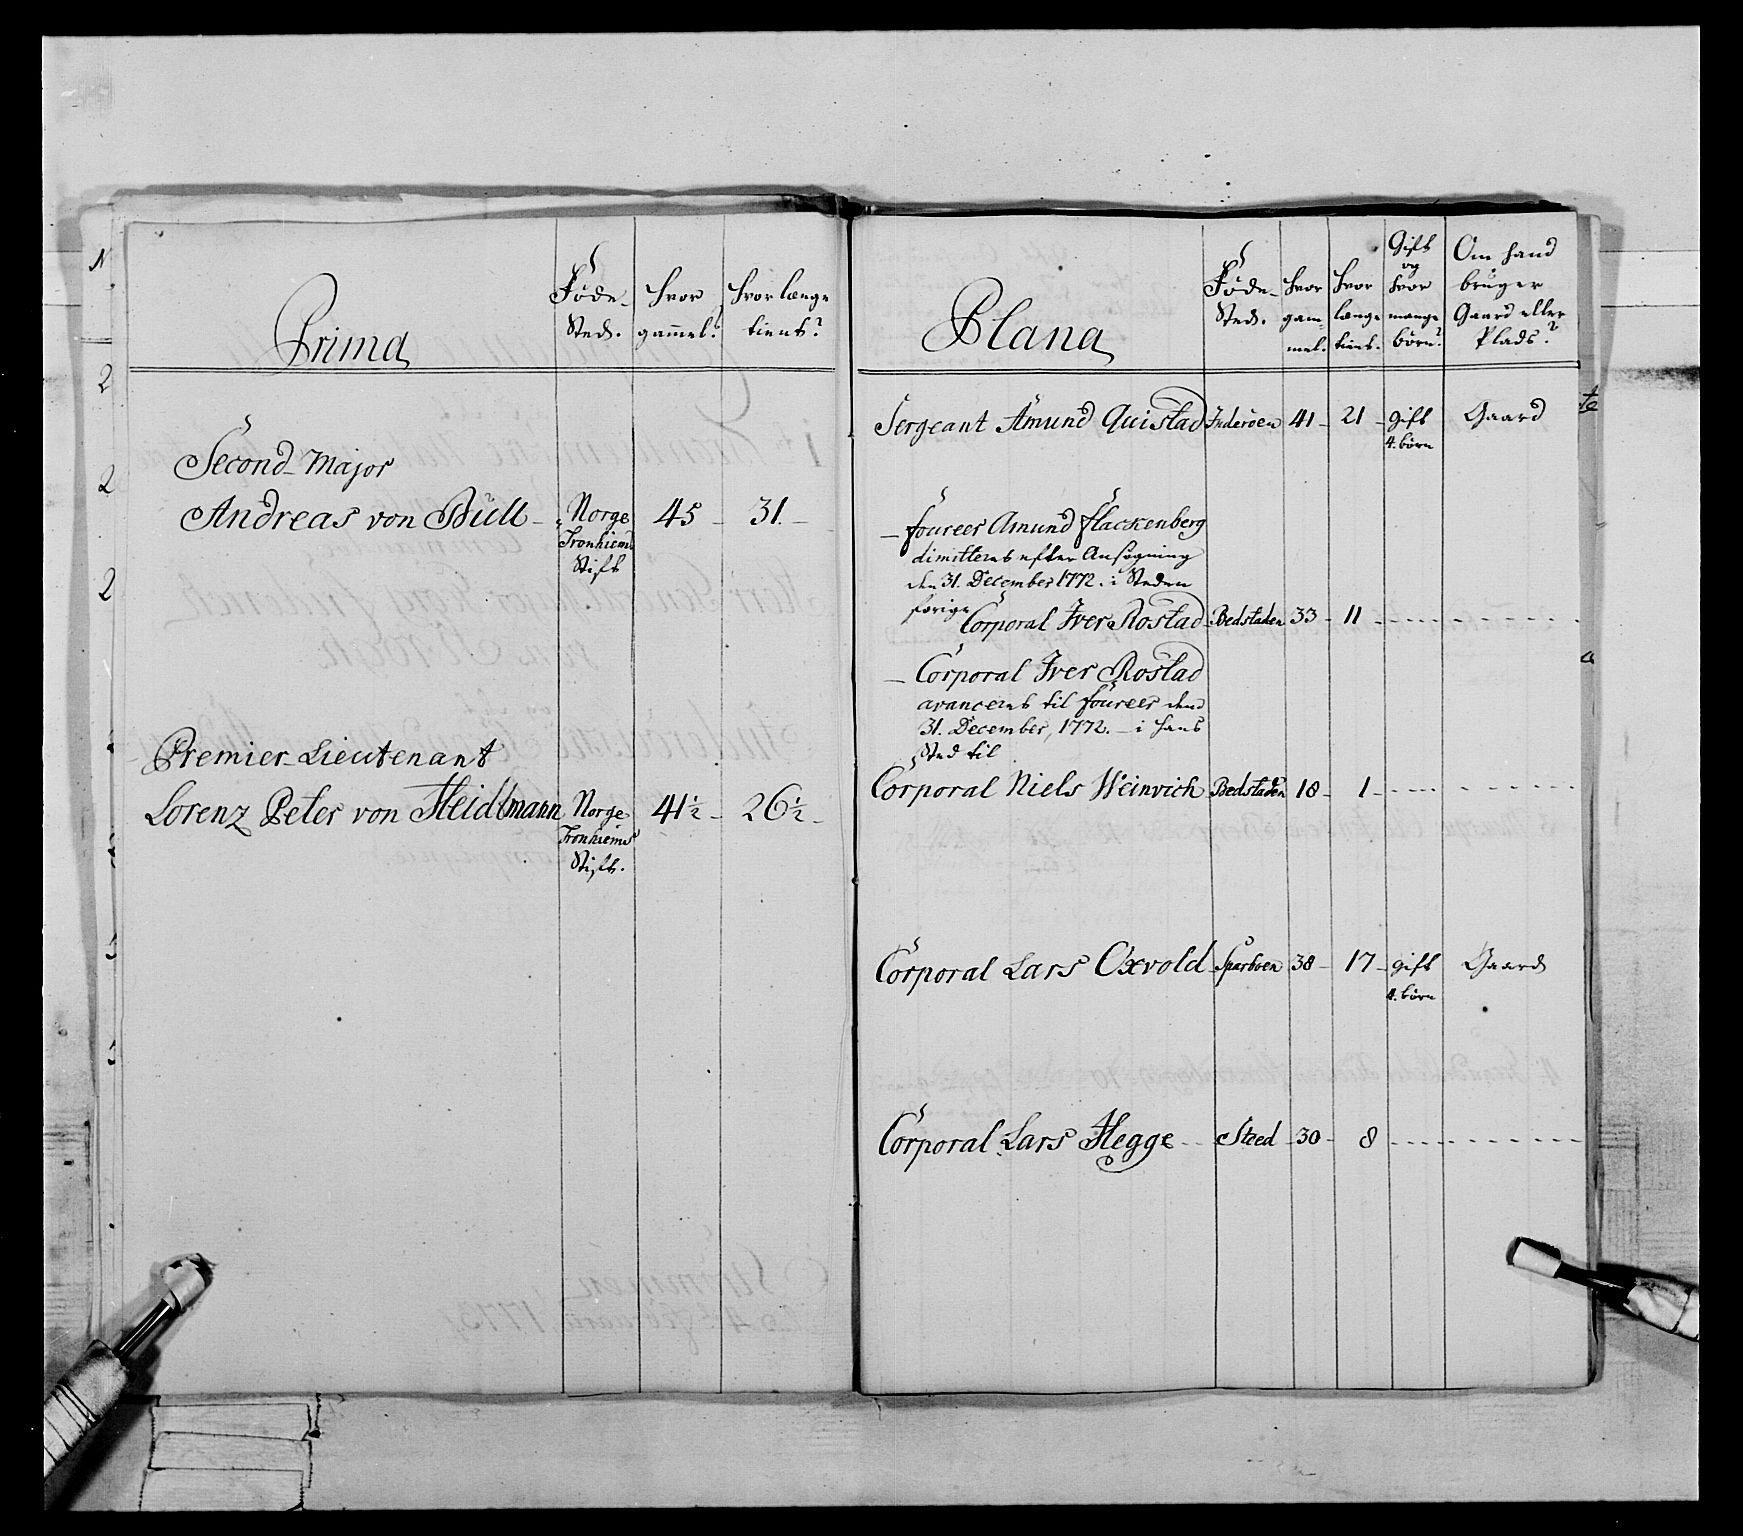 Prima
Føde-
Sted.
hvor
gammel?
hvor længe
tient?
Second-Major
Andreas von Büll - Norge 45 - 31. -
Tronhiems
Stift
Premier-Lieutenant
Lorenz Peter von Heidlmann Norge 41½ - 26½ -
Tronhiems
Stift.
Plana
Føde-
Sted.
hvor
gam-
mel.
hvor
længe
tient.
Gift
og
hvor
mange
børn?
Om hand
bruger
Gaard eller
Plads?
Sergeant Amund Quistad Inderøen 41 - 21 - gift Gaard
4. børn
- foureer Amund flackenberg
dimitteret efter Ansøgning
den 31. December 1772. i Steden
forige
Corporal Iver Rostad - Bedstaden 33 - 11 -
- Corporal Iver Rostad
avanceret til foureer den
31. December, 1772. - i hans
Sted til
Corporal Niels Weinrich Bedstaden 18 - 1 -
Corporal Lars Oxvold - Sparboen 38 - 17 - gift Gaard
4. børn
Corporal Lars Hegge - Steed - 30 - 8
N
2
2
2
te